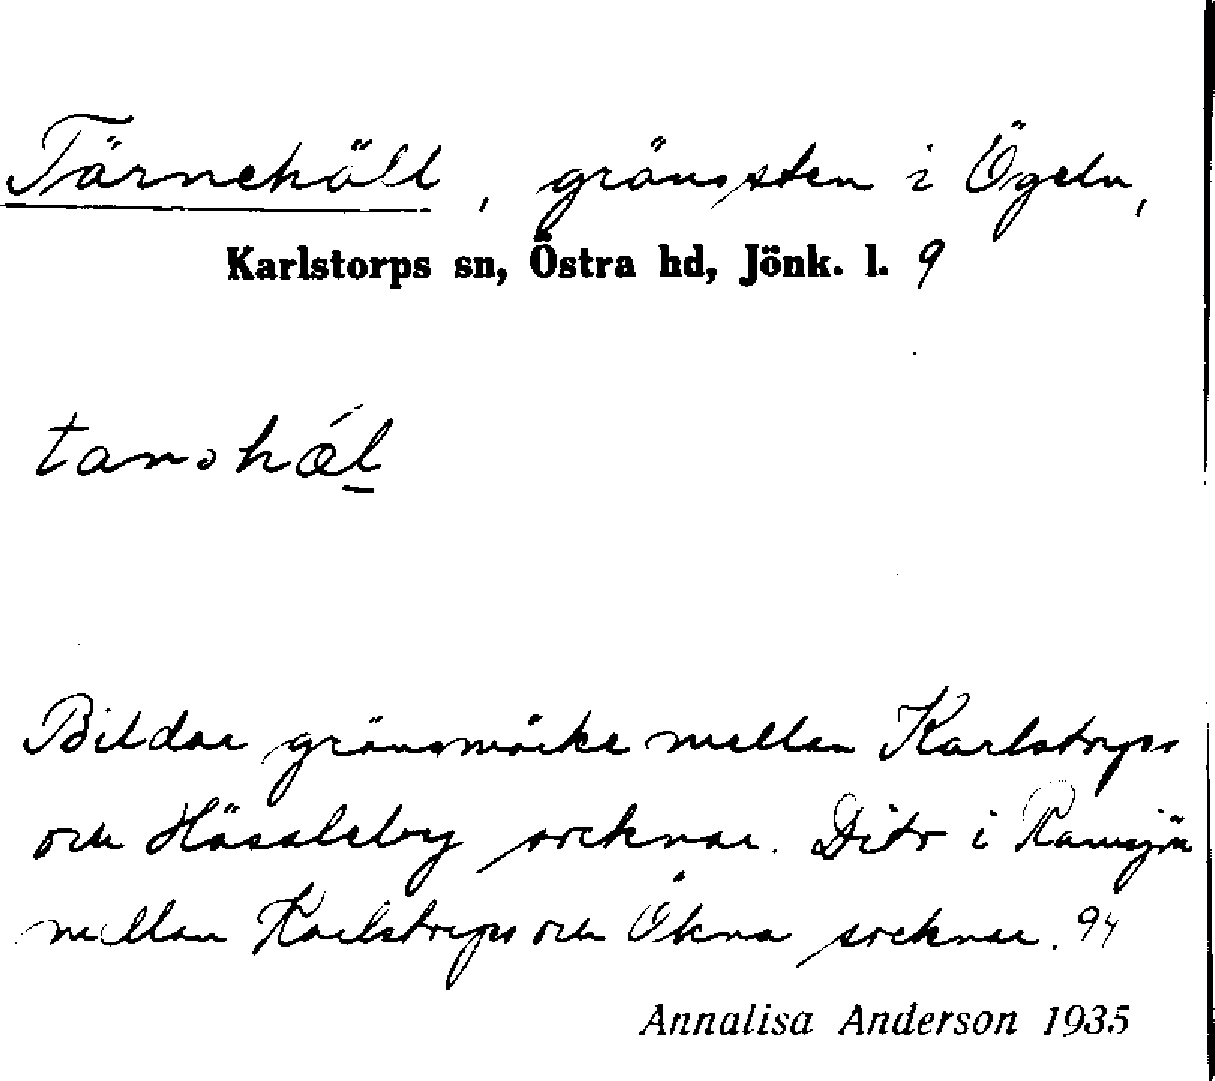 Tärnehäll, gränssten i Ögeln,
Karlstorps sn, Östra hd, Jönk. l. 9
Bildar gränsmärke mellan Karlstorps
och Hässleby socknar. Dito i Ramsjön
mellan Karlstorps och Ökna socknar. 94
Annalisa Anderson 1935